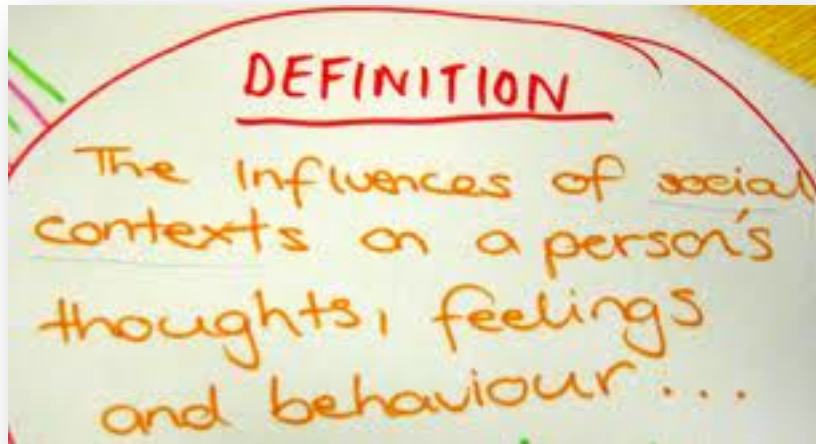 DEFINITION
The influences of social
contexts on a person's
thoughts, feelings
and behaviour...